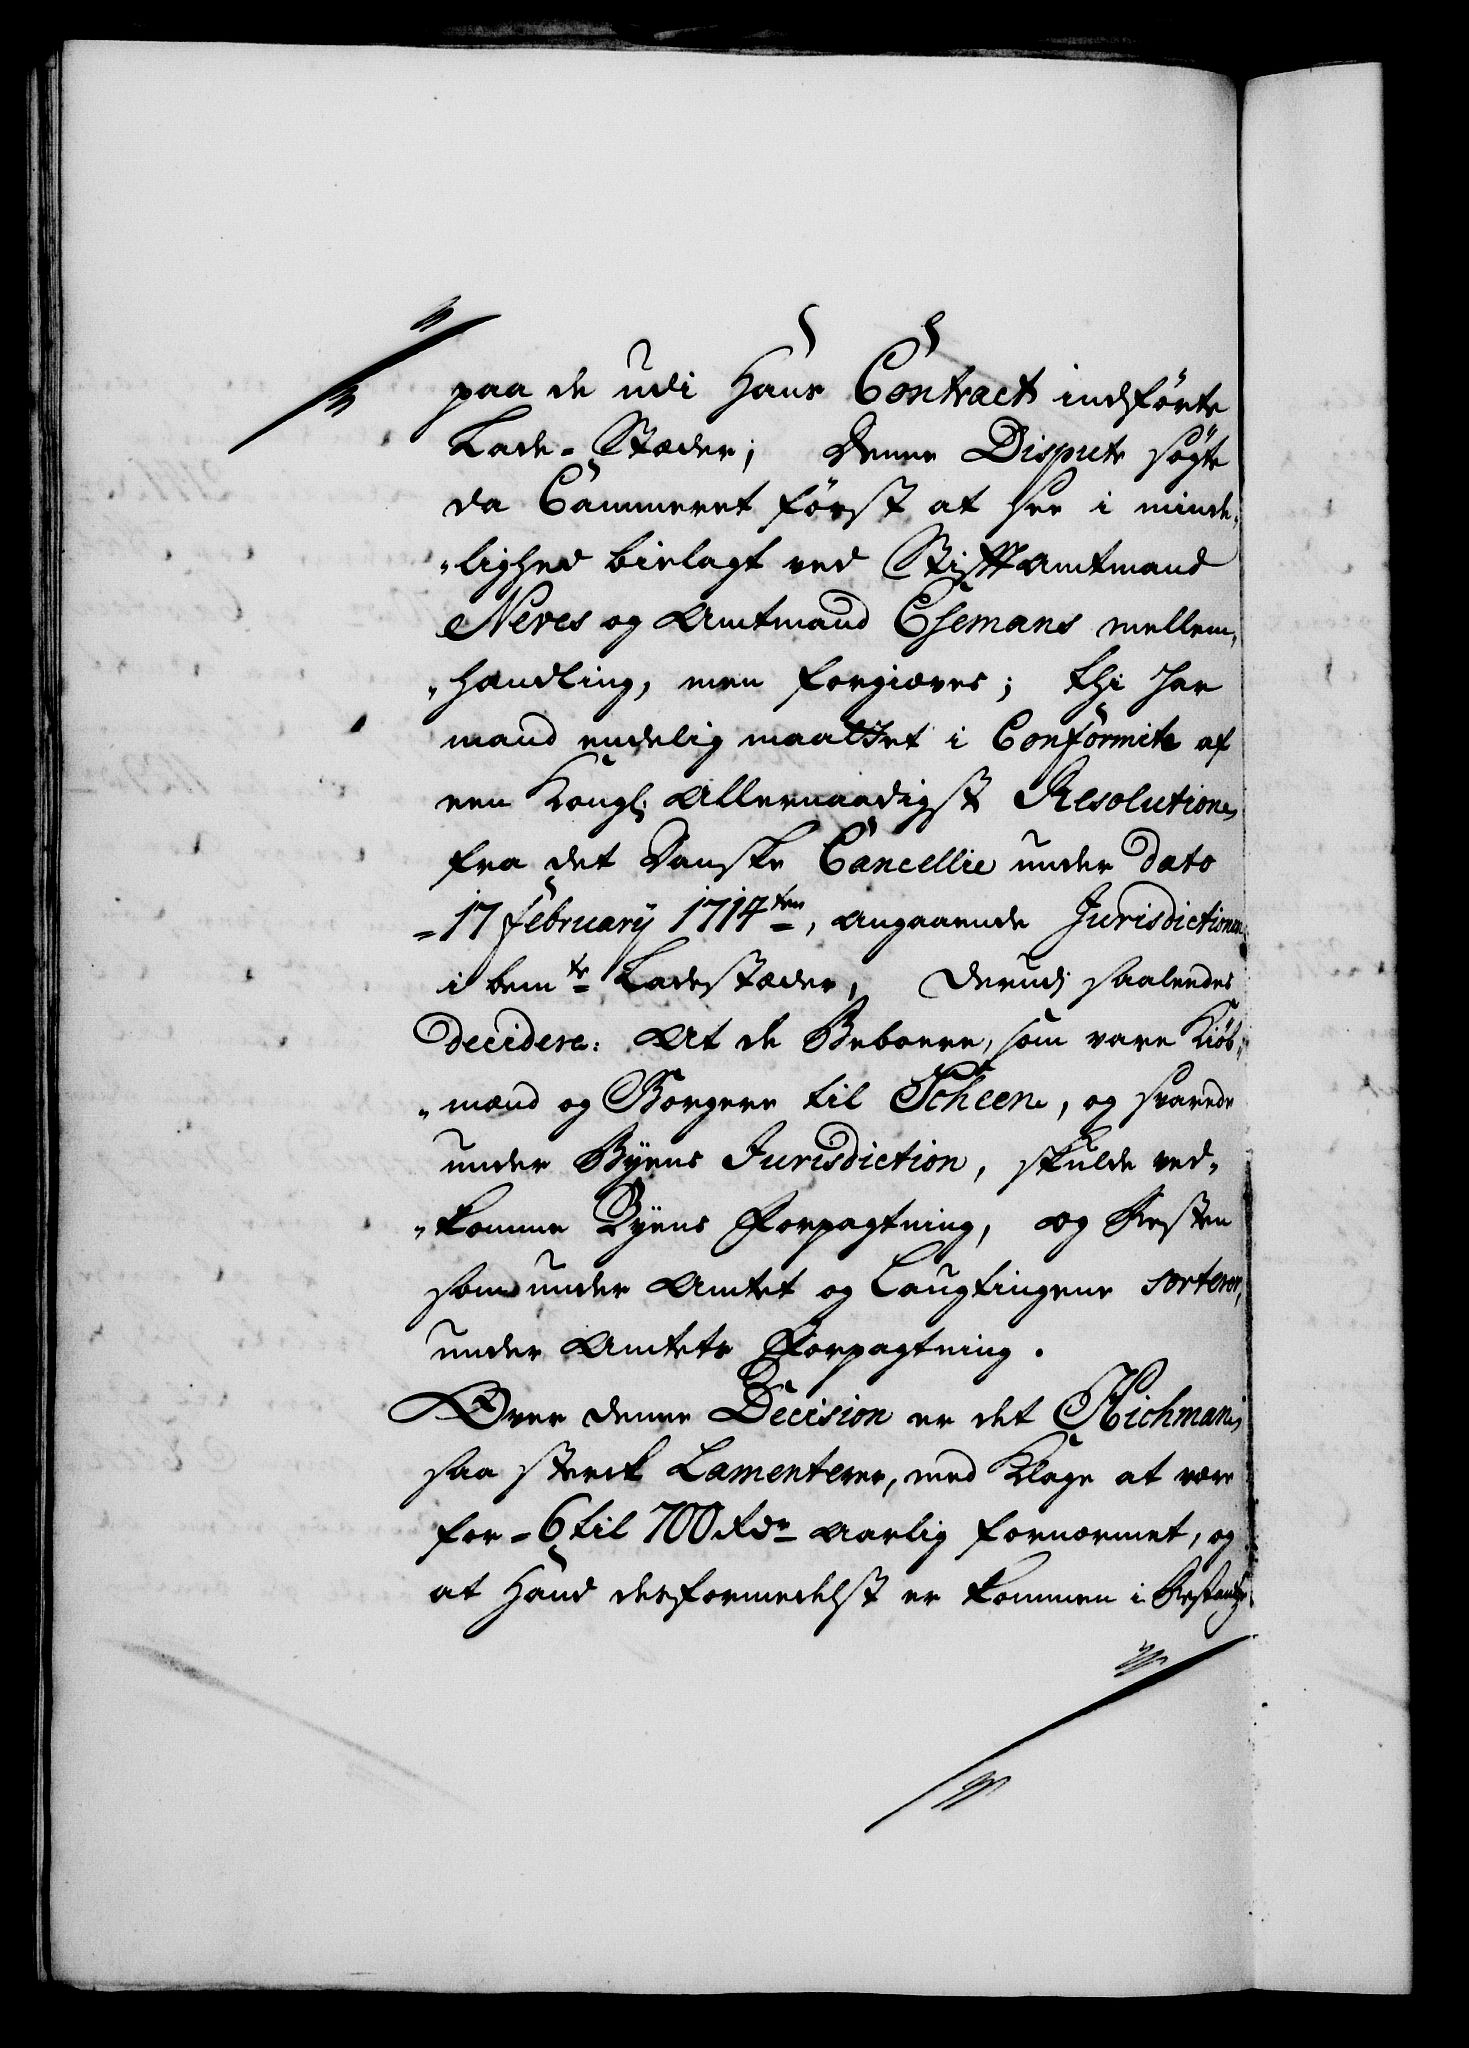 paa de udi Hans Contract indførte
Lade-Stæder; denne Dispute søgte
da Cammeret først at see i minde„
„lighed bielagt ved Stifftamtmand
Neves og Amtmand Esemans mellem„
„handling, men forgieves; thi har
mand endelig maattet i Conformite af
een Kongl: Allernaadigst Resolution
fra det danske Cancellie under dato
-17 February 1714ten, angaaende Jurisdictionen
i bemte Ladestæder, derudj saaleedes
decidere: At de Beboere, som vare Kiøb„
„mænd og Borgere til Scheen, og svarede
under Byens Jurisdiction, skulde ved„
„komme Byens Forpagtning, og Resten
som under Amtet og Laugtingene sorterer,
under Amtets Forpagtning.
Over denne Decision er det Richman
saa sterck Lamenterer, med Klage at være
for -6 til 700 Rdr aarlig fornærmet, og
at Hand desformedelst er kommen i Restantz